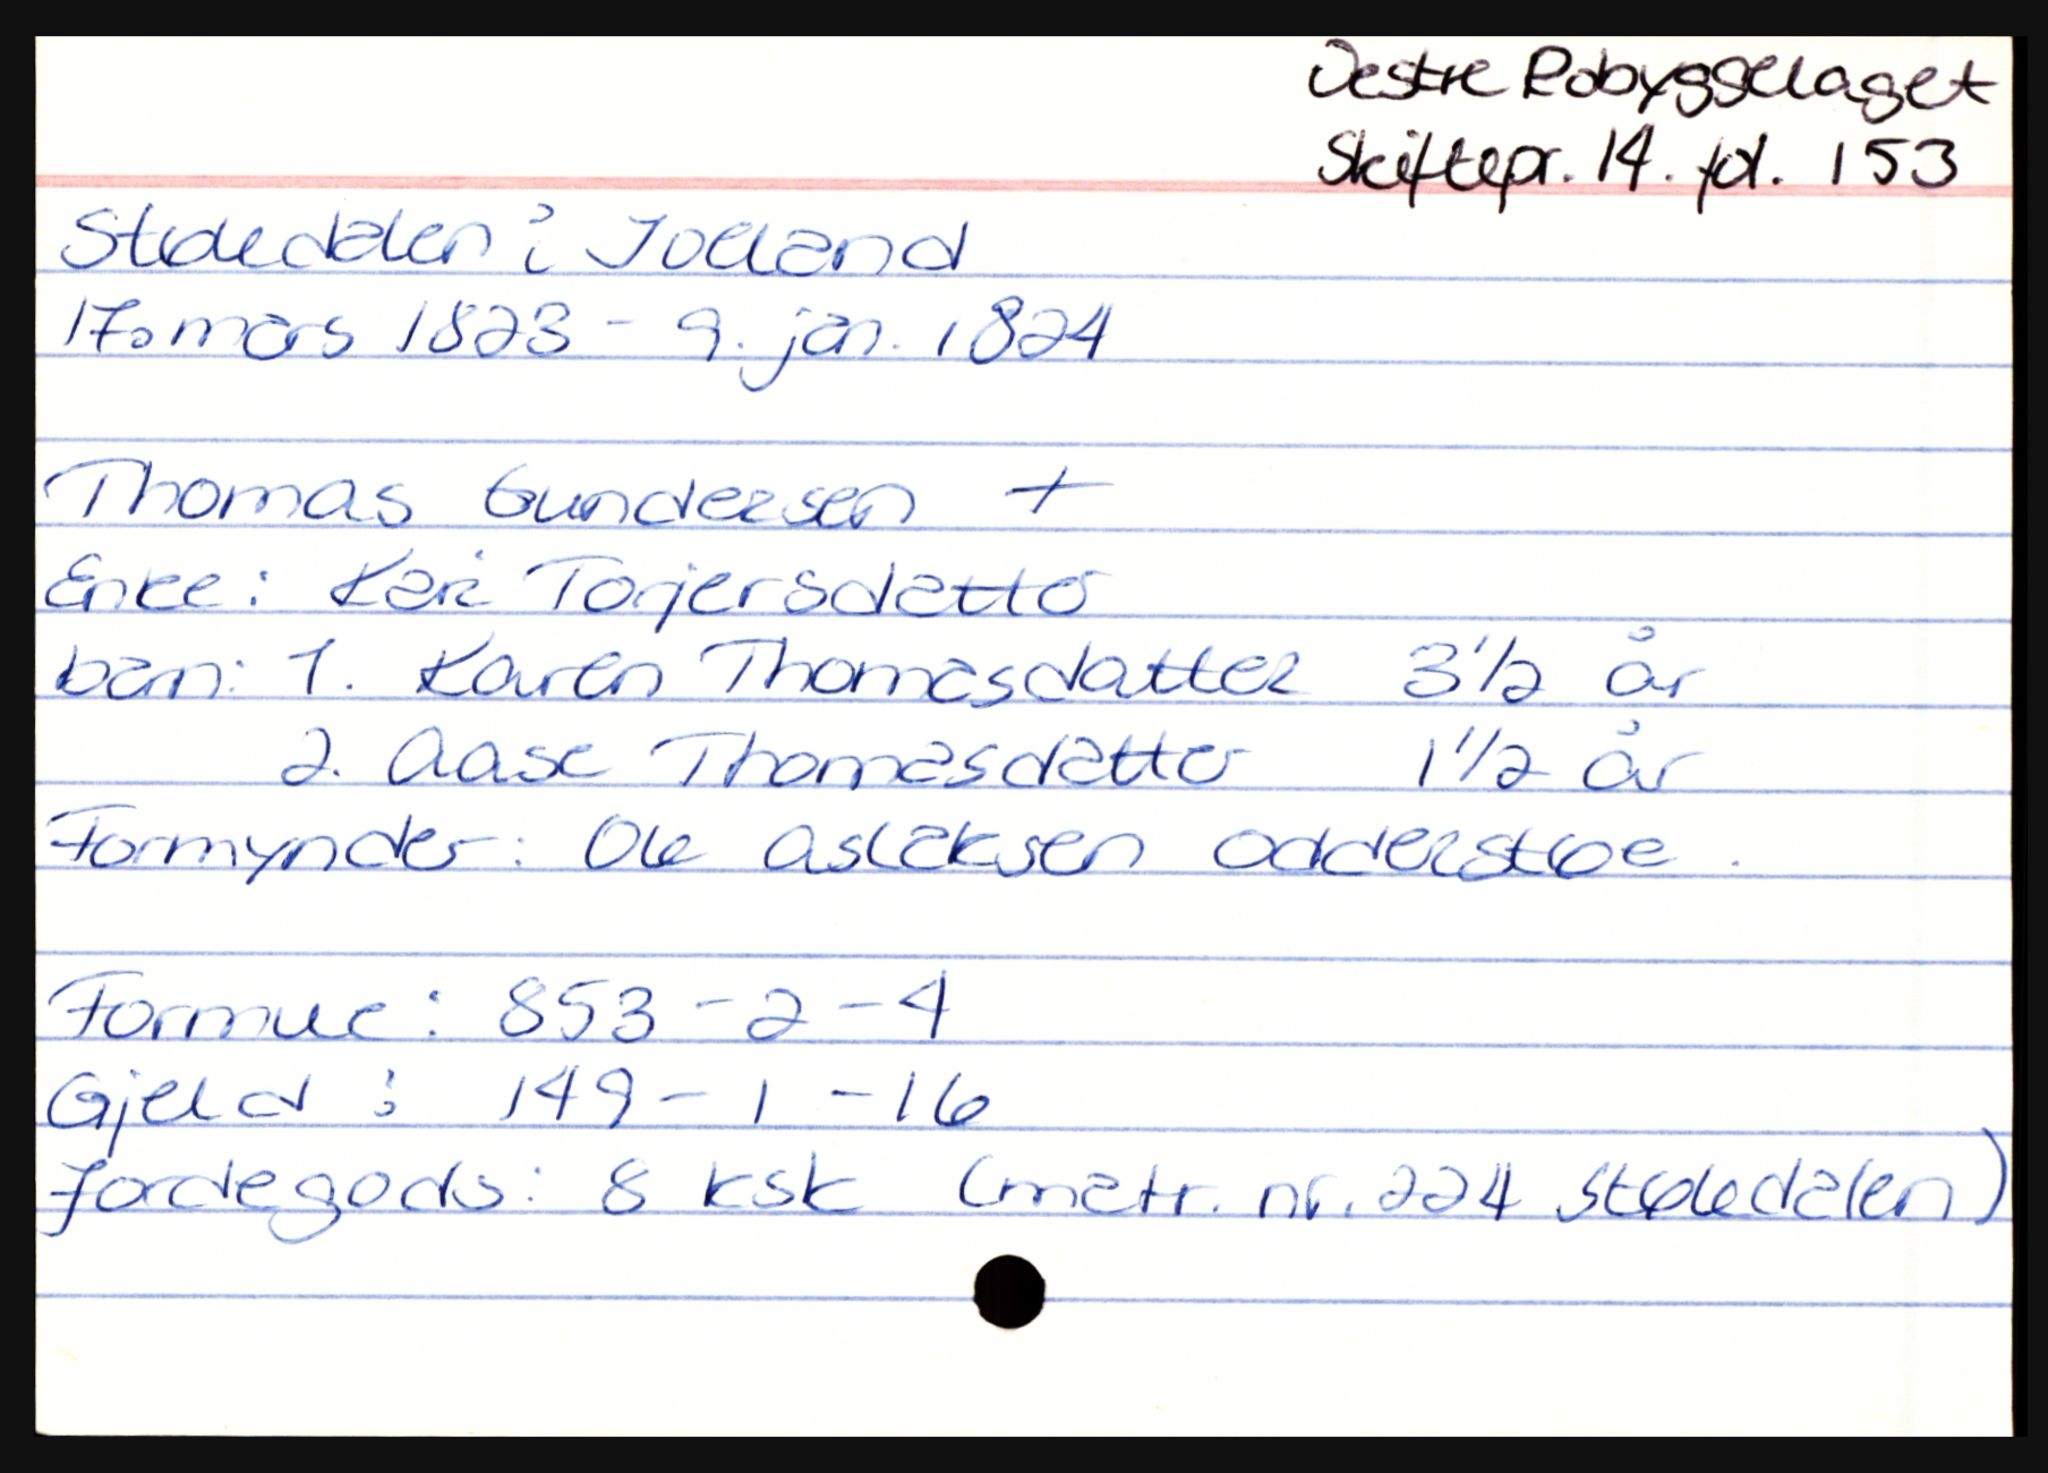 Vestre Robyggelaget
Skiftepr. 14. fol. 153
Stødedalen i Iveland
17. mars 1823 - 9. jan. 1824
Thomas Gundersen +
Enke: Kari Torjersdatter
barn: 1. Karen Thomasdatter 3 1/2 år
2. Aase Thomasdatter 1 1/2 år
Formynder: Ole Aslaksen Odderstøe.
Formue: 853 - 2 - 4
Gjeld: 149 - 1 - 16
Jordegods: 8 ksk (matr. nr. 224 Stødedalen)